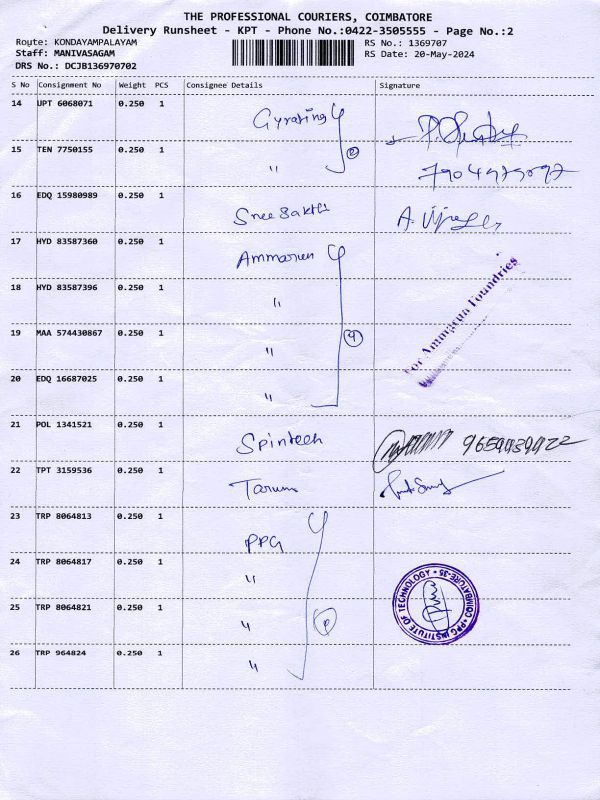 THE PROFESSIONAL COURIERS, COIMBATORE
Delivery Runsheet - KPT - Phone No.:0422-3505555 - Page No.:2
Route: KONDAYAMPALAYAM RS No.: 1369707
Staff: MANIVASAGAM RS Date: 20-May-2024
DRS No.: DCJB136970702
S No Consignment No Weight PCS Consignee Details Signature
14 UPT 6068071 0.250 1
15 TEN 7750155 0.250 1 "
16 EDQ 15980989 0.250 1 Sree Sakthi
17 HYD 83587360 0.250 1 Ammarun
18 HYD 83587396 0.250 1 "
19 MAA 574430867 0.250 1 " 4
For Ammarun Foundries
20 EDQ 16687025 0.250 1 "
21 POL 1341521 0.250 1 Spintech
22 TPT 3159536 0.250 1
23 TRP 8064813 0.250 1 PPG
24 TRP 8064817 0.250 1 "
25 TRP 8064821 0.250 1 "
PPG INSTITUTE OF TECHNOLOGY • COIMBATORE-35 •
26 TRP 964824 0.250 1 "